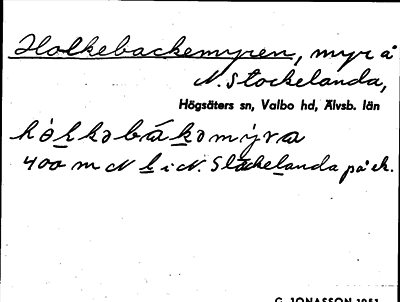 Holkebackemyren, myr å
N. Stockelanda,
Högsäters sn, Valbo hd, Älvsb. län
hòlkəbákəmýra
400 m N b i N. Stockelanda på ek.
G. JONASSON 1951